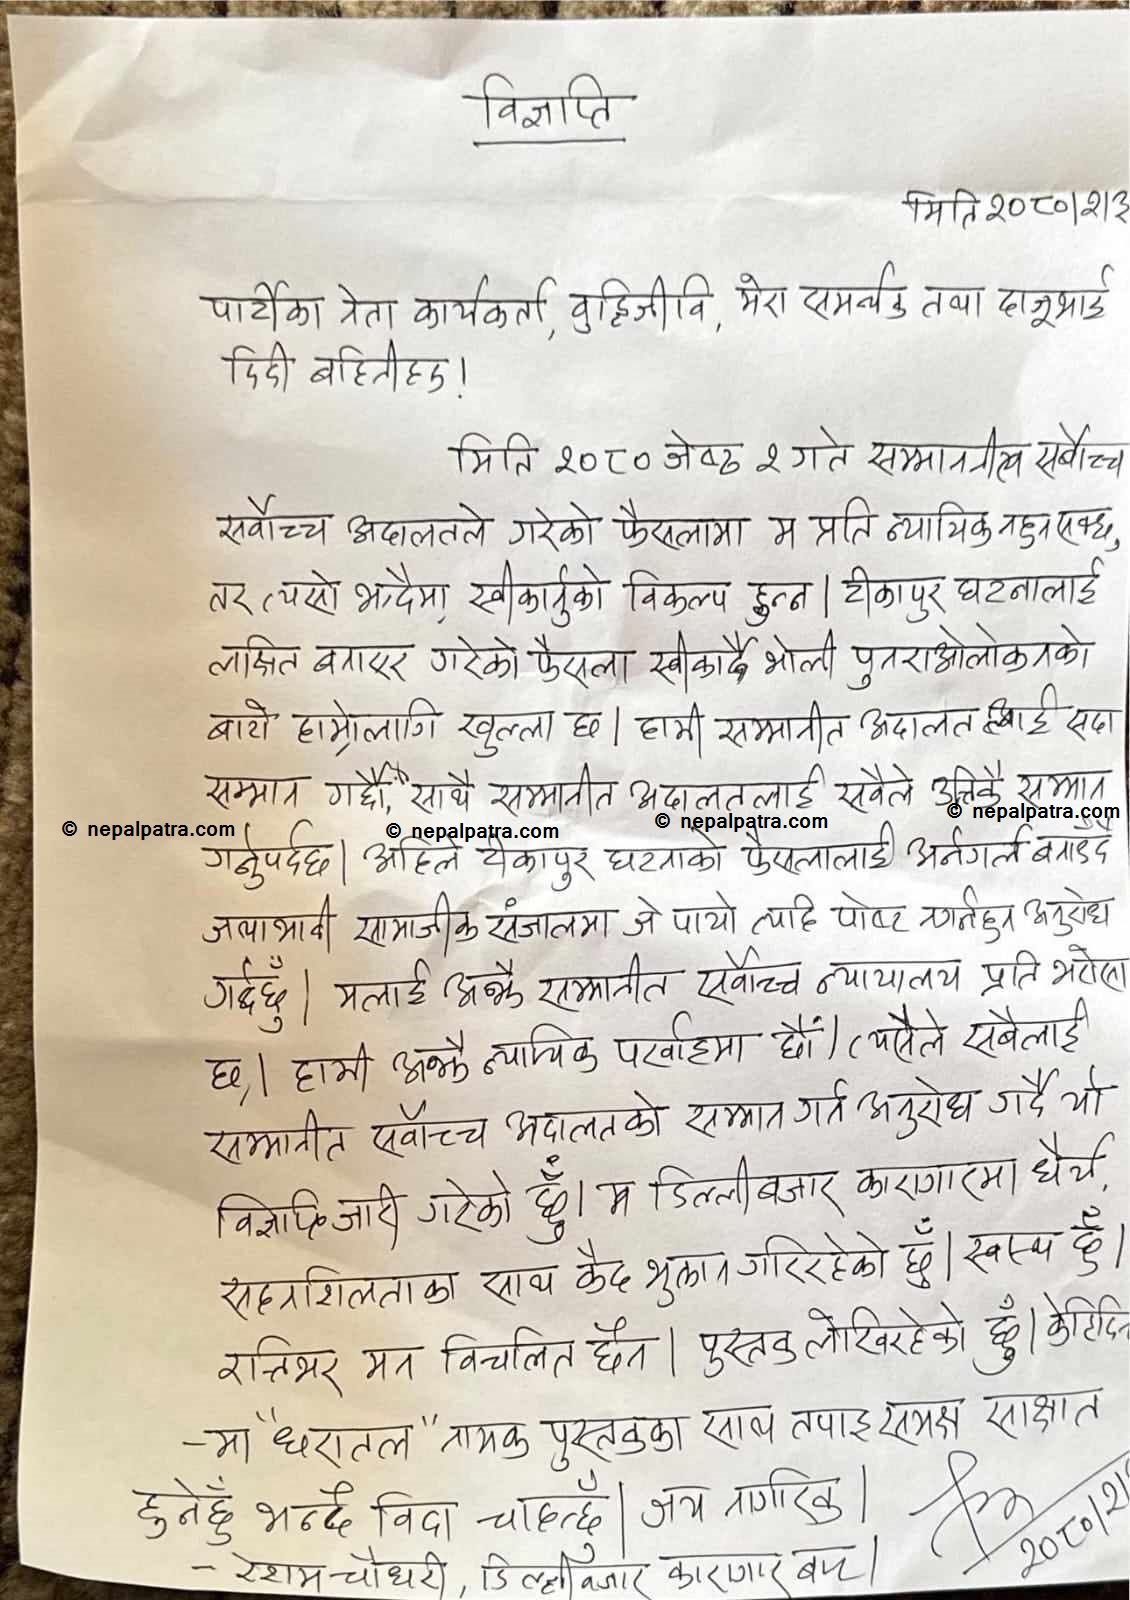 विज्ञप्ति
मिति २०८०/२/३
पार्टीका नेता कार्यकर्ता, वुद्धिजीवि, मेरा समर्थक तथा दाजूभाई
दिदी बहिनीहरु!
मिति २०८० जेष्ठ २ गते सम्माननीय सर्वोच्च
सर्वोच्च अदालतले गरेको फैसलामा म प्रति न्यायिक नहुन सक्छ,
तर त्यसो भन्दैमा, स्वीकार्नुको विकल्प हुन्न। टीकापुर घटनालाई
लक्षित बनाएर गरेको फैसला स्वीकार्दै भोली पुनराओलोकनको
बाटो हाम्रोलागि खुल्ला छ। हामी सम्मानीत अदालत लाई सदा
सम्मान गर्छौं, साथै सम्मानीत अदालतलाई सवैले उत्तिकै सम्मान
© nepalpatra.com © nepalpatra.com © nepalpatra.com © nepalpatra.com
गर्नुपर्दछ। अहिले टीकापुर घटनाको फैसलालाई अर्नगर्ल बनाउँदै
जथाभावी सामाजीक संजालमा जे पायो त्यहि पोष्ट नगर्नहुन अनुरोध
गर्द्दछुँ। मलाई अझै सम्मानीत सर्वोच्च न्यायालय प्रति भरोसा
छ,। हामी अझै न्यायिक परर्वाहमा छौं। त्यसैले सबैलाई
सम्मानीत सर्वोच्च अदालतको सम्मान गर्न अनुरोध गर्दै यो
विज्ञप्ति जारी गरेको छुँ। म डिल्लीबजार कारागारमा धैर्य,
सहनशिलताका साथ कैद भुक्तान गरिरहेको छुँ। स्वस्थ छुँ।
रत्तिभर मन विचलित छैन। पुस्तक लेखिरहेको छुँ। केहिदिन
-मा "धरातल" नामक पुस्तकका साथ तपाइ समक्ष साक्षात
हुनेछुँ भन्दै विदा चाहन्छुँ। जय नागरिक।
- रेशम चौधरी, डिल्लीबजार कारागार बाट।
२०८०/२/